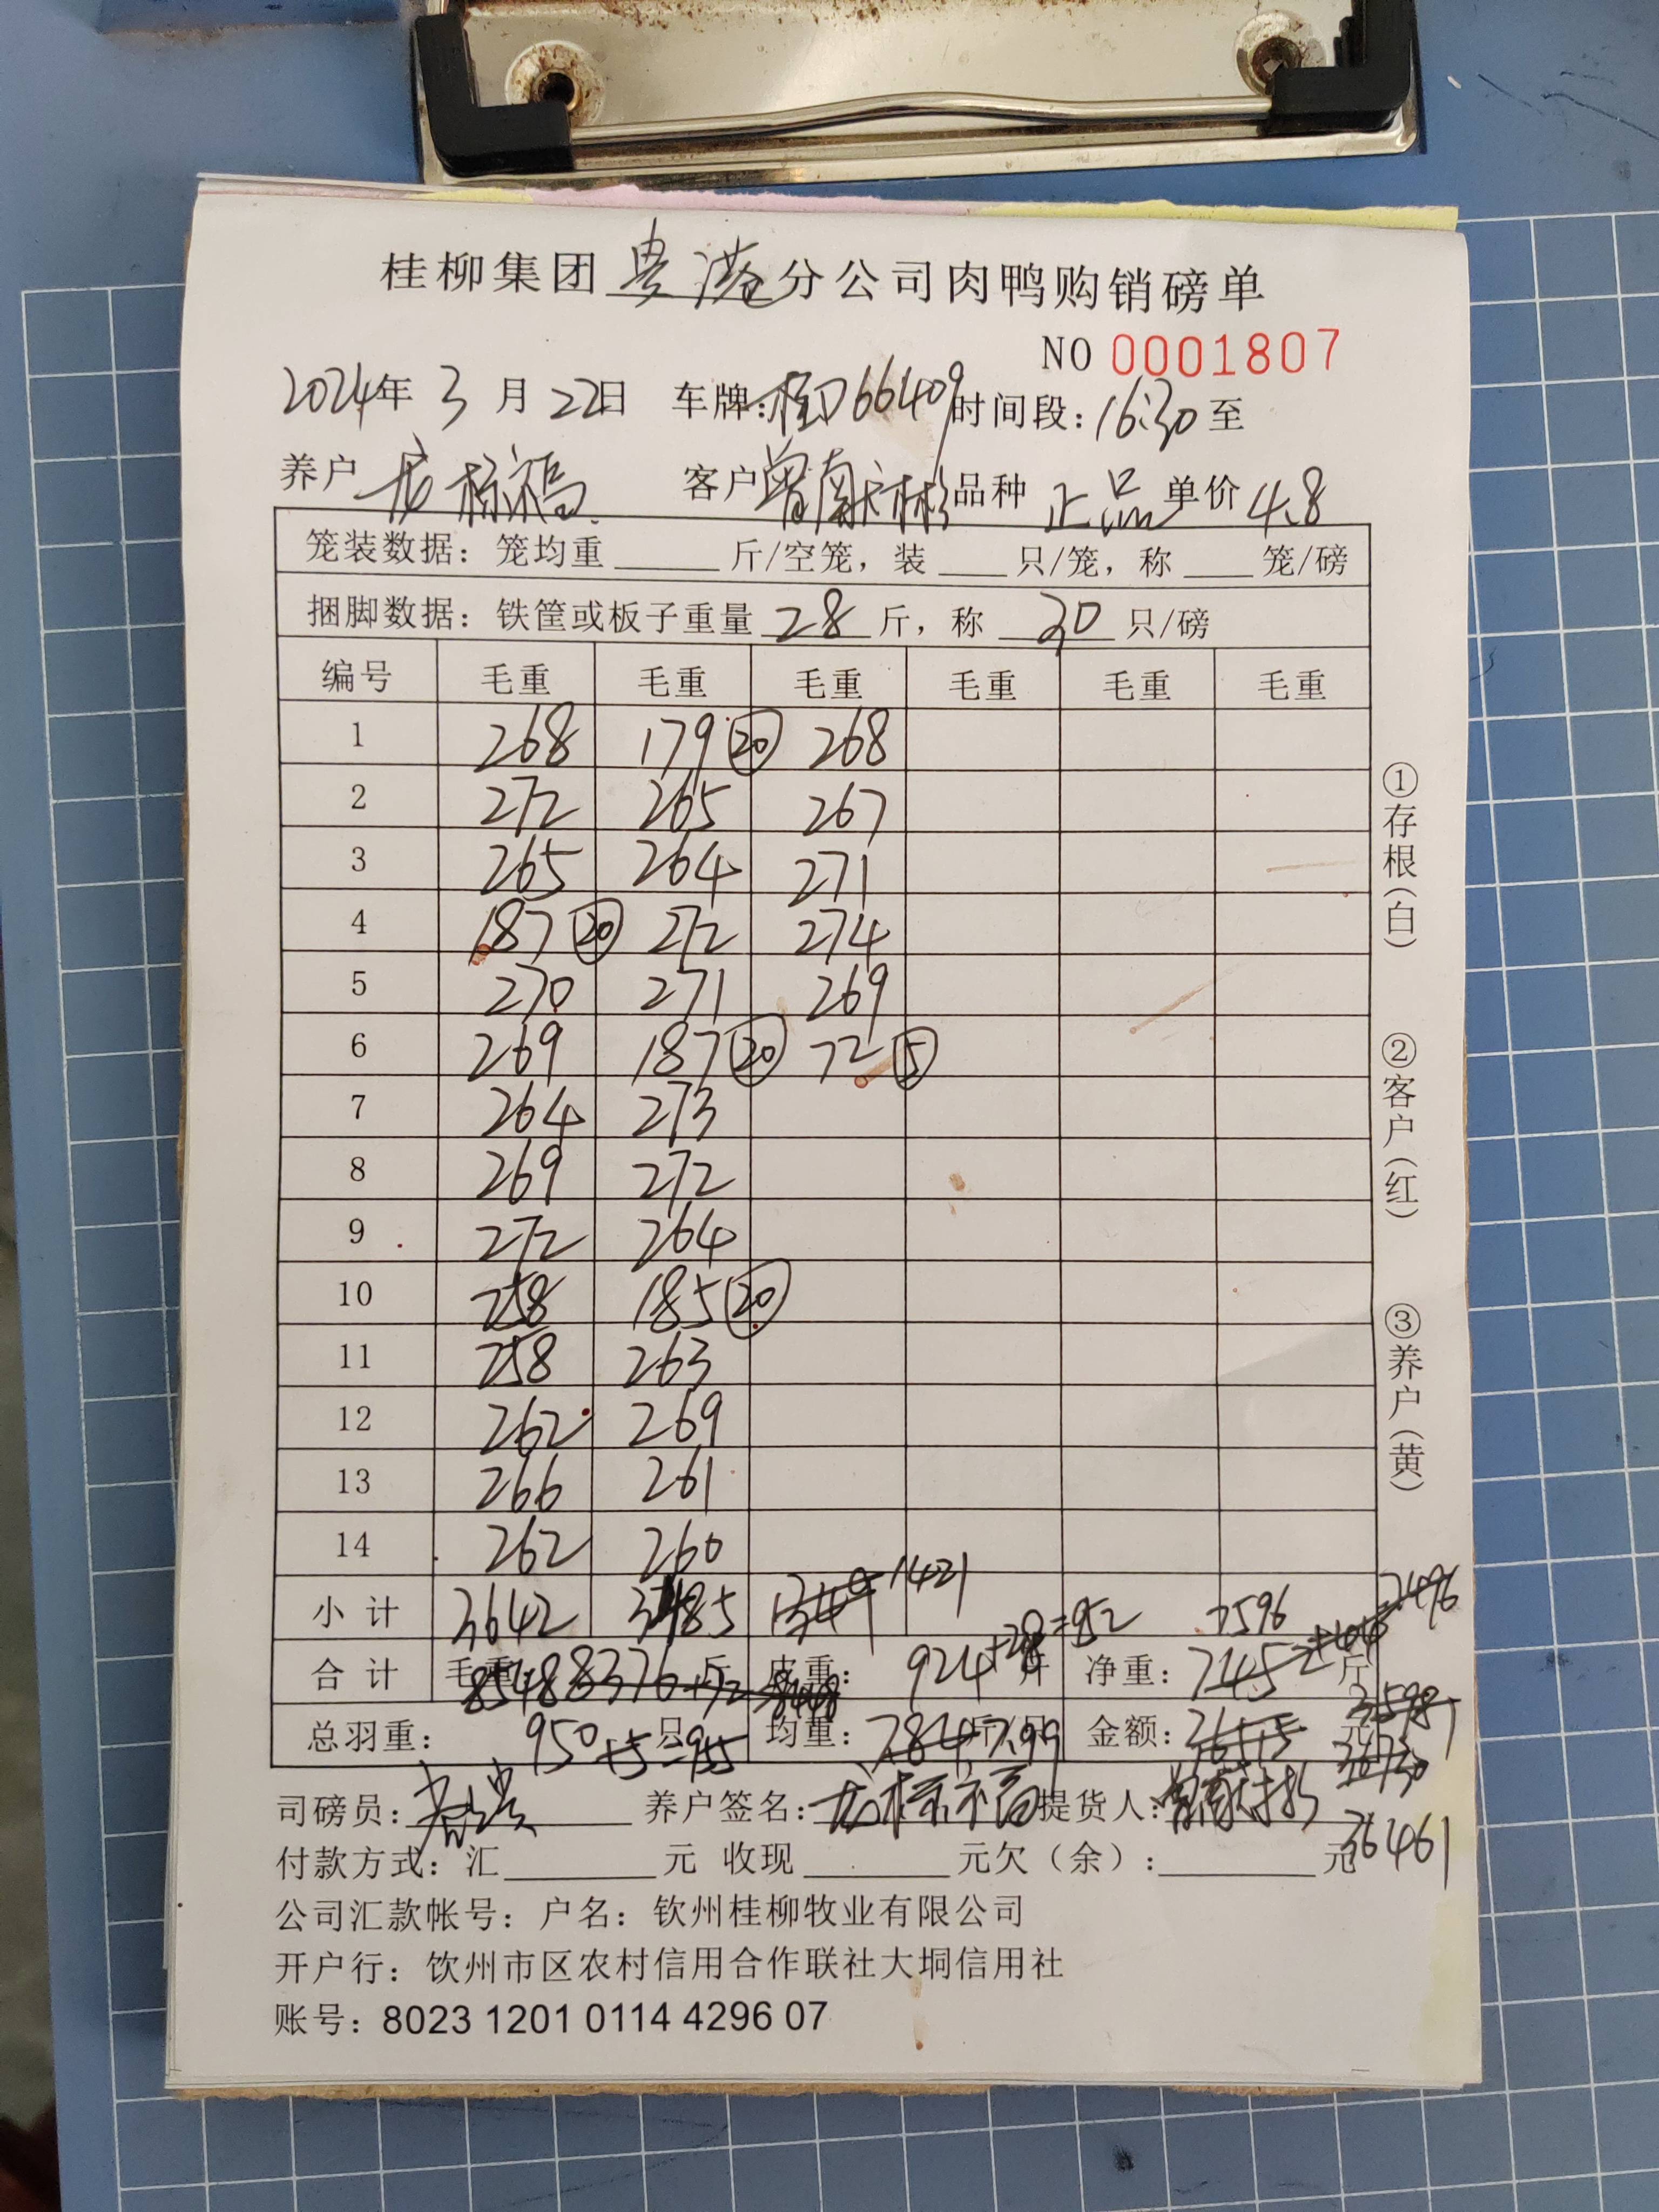 桂柳集团贵港分公司肉鸭购销磅单
NO 0001807
2024年 3 月 22日 车牌:桂D66409 时间段:16:30 至
养户 标福 客户 曾献彬 品种 正品 单价 4.8
笼装数据: 笼均重 斤/空笼, 装 只/笼, 称 笼/磅
捆脚数据: 铁筐或板子重量 28 斤, 称 30 只/磅
编号 毛重 毛重 毛重 毛重 毛重 毛重
1 268 179 ⑳ 268
2 272 265 267
3 265 264 271
4 187 ⑳ 272 274
5 270 271 269
6 269 187 ⑳ 72 ⑤
7 264 273
8 269 272
9 272 264
10 258 185 ⑳
11 258 263
12 262 269
13 266 261
14 262 260
小计 3642 3485 1349 1421 7596 7496
合计 毛重: 8548 8376+72=8448 斤 皮重: 924+28=952 斤 净重: 7452 斤
总羽重: 950+5=955 只 均重: 7.84 7.99 斤/只 金额: 元
司磅员: 养户签名: 标福 提货人: 曾献彬
36461
付款方式: 汇 元 收现 元欠(余): 元
公司汇款帐号: 户名: 钦州桂柳牧业有限公司
开户行: 饮州市区农村信用合作联社大垌信用社
账号: 8023 1201 0114 4296 07
①存根(白)
②客户(红)
③养户(黄)